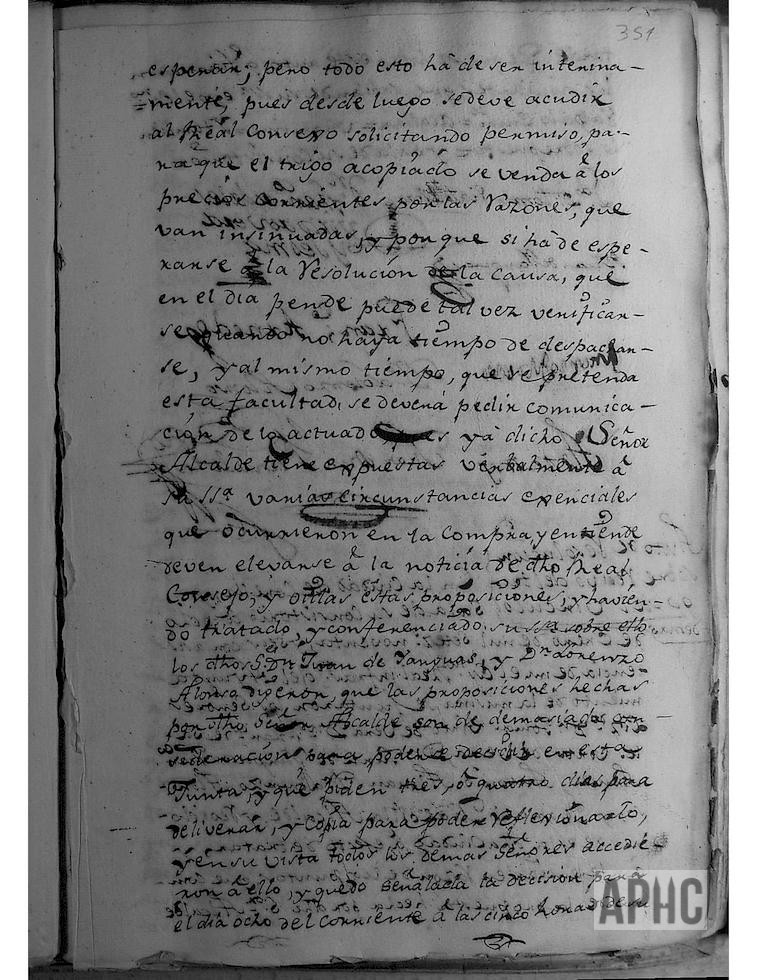 351
esperan; pero todo esto hà de ser interina-
mente, pues desde luego sedeve acudir
al Rèal Consexo solicitando permiso, pa-
ra que el trigo acopiado se venda â los
precios corrientes por las razones, que
van insinuadas, y porque si hà de espe-
rarse â la resolución de la causa, que
en el dia pende puede tal vez verificar-
se quando no haya tiempo de despachar-
se, y al mismo tiempo, que se pretenda
esta facultad, se deverá pedir comunica-
ción de lo actuado pues yà dicho Señor
Alcalde tiene expuestas verbalmente â
su ssª varias circunstancias exenciales
que ocurrieron en la compra, y entiende
deven elevarse â la noticia de dho Rèal
Consejo; y oidas estas proposiciones, y havien-
do tratado, y conferenciado su ssª sobre ello
los dhos Sres Dn Juan de Yanguas, y Dn Lorenzo
Alonso digeron, que las proposiciones hechas
por dho Señor Alcalde son de demasiada con-
sideración para poder decidir en esta
Junta, y que piden tres, ô quatro dias para
deliverar, y Copia para poder reflexionarlo,
y en su vista todos los demas Señores accedie-
ron â ello, y quedo señalada la decision para
el dia ocho del corriente â las cinco horas de su
APHC